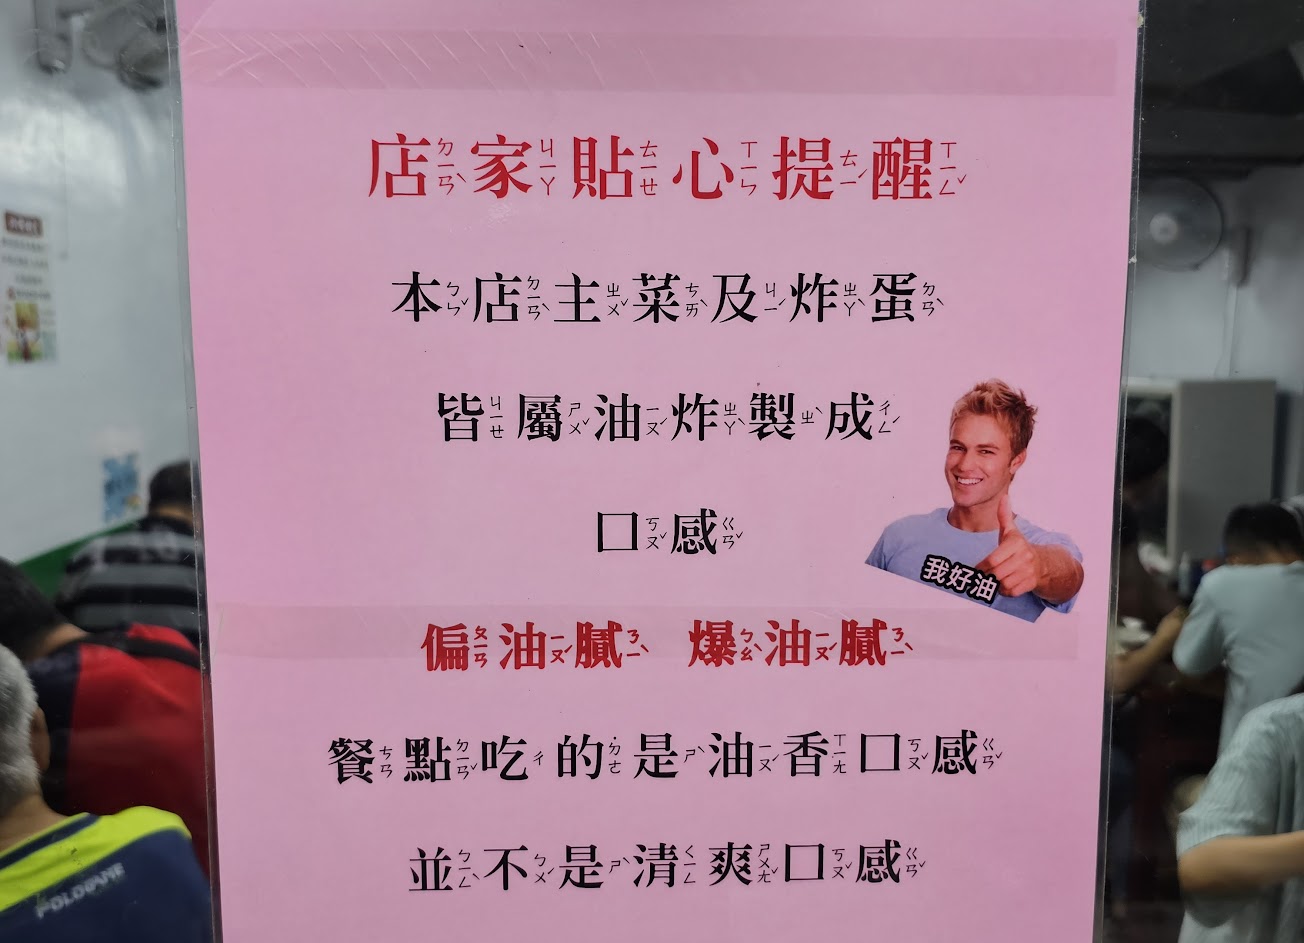 店家貼心提醒
本店主菜及炸蛋
皆屬油炸製成
口感
我好油
偏油膩 爆油膩
餐點吃的是油香口感
並不是清爽口感
POLOGAME